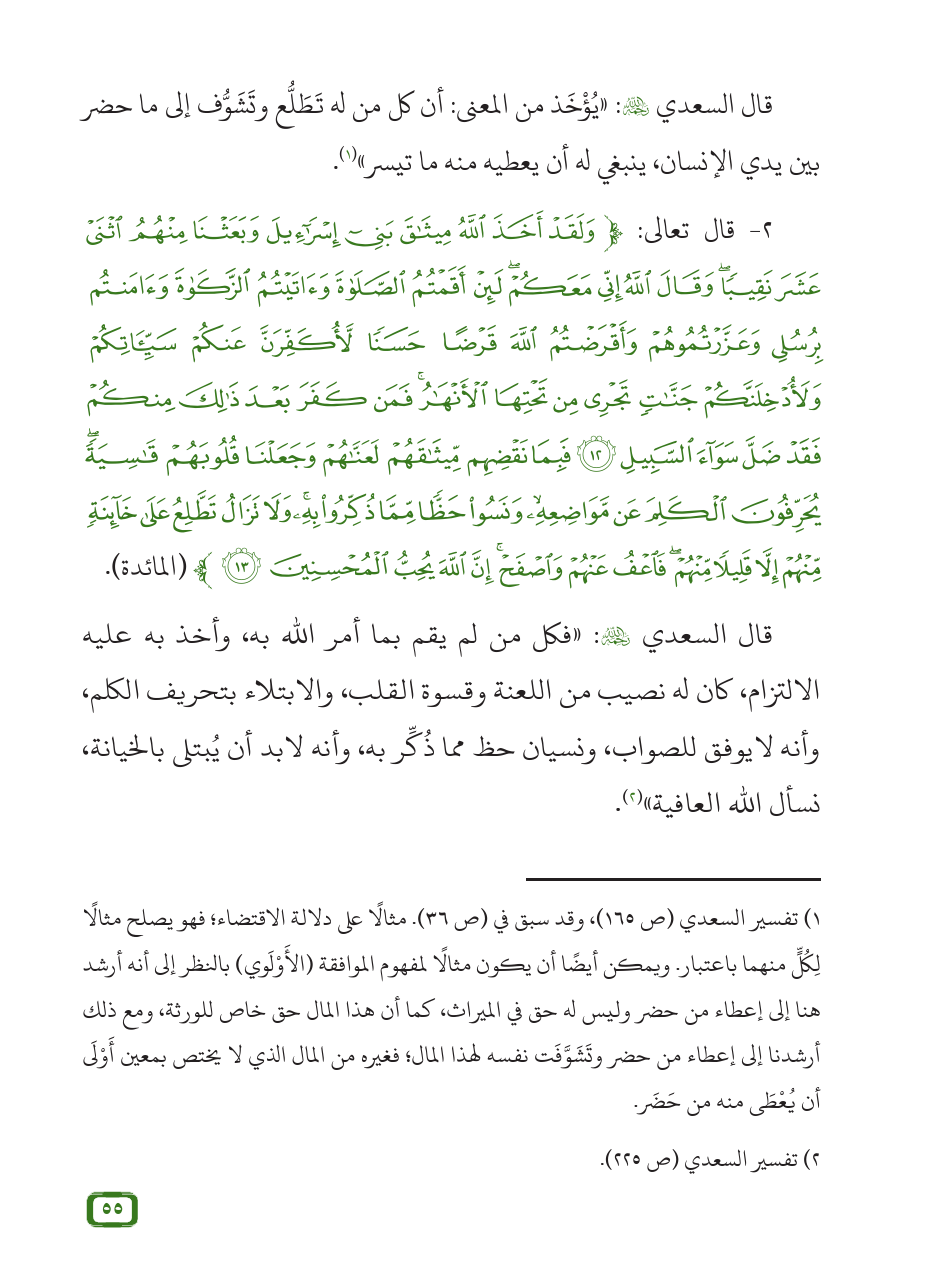 قال السعدي ﵀: «يُؤْخَذ من المعنى: أن كل من له تَطَلُّع وتَشَوُّف إلى ما حضر
بين يدي الإنسان، ينبغي له أن يعطيه منه ما تيسر»(١).
٢- قال تعالى: ﴿ وَلَقَدْ أَخَذَ ٱللَّهُ مِيثَٰقَ بَنِىٓ إِسْرَٰٓءِيلَ وَبَعَثْنَا مِنْهُمُ ٱثْنَىْ
عَشَرَ نَقِيبًاۖ وَقَالَ ٱللَّهُ إِنِّى مَعَكُمْۖ لَئِنْ أَقَمْتُمُ ٱلصَّلَوٰةَ وَءَاتَيْتُمُ ٱلزَّكَوٰةَ وَءَامَنتُم
بِرُسُلِى وَعَزَّرْتُمُوهُمْ وَأَقْرَضْتُمُ ٱللَّهَ قَرْضًا حَسَنًا لَّأُكَفِّرَنَّ عَنكُمْ سَيِّـَٔاتِكُمْ
وَلَأُدْخِلَنَّكُمْ جَنَّٰتٍ تَجْرِى مِن تَحْتِهَا ٱلْأَنْهَٰرُۚ فَمَن كَفَرَ بَعْدَ ذَٰلِكَ مِنكُمْ
فَقَدْ ضَلَّ سَوَآءَ ٱلسَّبِيلِ ١٢ فَبِمَا نَقْضِهِم مِّيثَٰقَهُمْ لَعَنَّٰهُمْ وَجَعَلْنَا قُلُوبَهُمْ قَٰسِيَةًۖ
يُحَرِّفُونَ ٱلْكَلِمَ عَن مَّوَاضِعِهِۦۙ وَنَسُوا۟ حَظًّا مِّمَّا ذُكِّرُوا۟ بِهِۦۚ وَلَا تَزَالُ تَطَّلِعُ عَلَىٰ خَآئِنَةٍ
مِّنْهُمْ إِلَّا قَلِيلًا مِّنْهُمْۖ فَٱعْفُ عَنْهُمْ وَٱصْفَحْۚ إِنَّ ٱللَّهَ يُحِبُّ ٱلْمُحْسِنِينَ ١٣ ﴾ (المائدة).
قال السعدي ﵀: «فكل من لم يقم بما أمر الله به، وأخذ به عليه
الالتزام، كان له نصيب من اللعنة وقسوة القلب، والابتلاء بتحريف الكلم،
وأنه لايوفق للصواب، ونسيان حظ مما ذُكِّر به، وأنه لابد أن يُبتلى بالخيانة،
نسأل الله العافية»(٢).
١) تفسير السعدي (ص ١٦٥)، وقد سبق في (ص ٣٦). مثالًا على دلالة الاقتضاء؛ فهو يصلح مثالًا
لِكُلٍّ منهما باعتبار. ويمكن أيضًا أن يكون مثالًا لمفهوم الموافقة (الأَوْلَوي) بالنظر إلى أنه أرشد
هنا إلى إعطاء من حضر وليس له حق في الميراث، كما أن هذا المال حق خاص للورثة، ومع ذلك
أرشدنا إلى إعطاء من حضر وتَشَوَّفَت نفسه لهذا المال؛ فغيره من المال الذي لا يختص بمعين أَوْلَى
أن يُعْطَى منه من حَضَر.
٢) تفسير السعدي (ص ٢٢٥).
٥٥